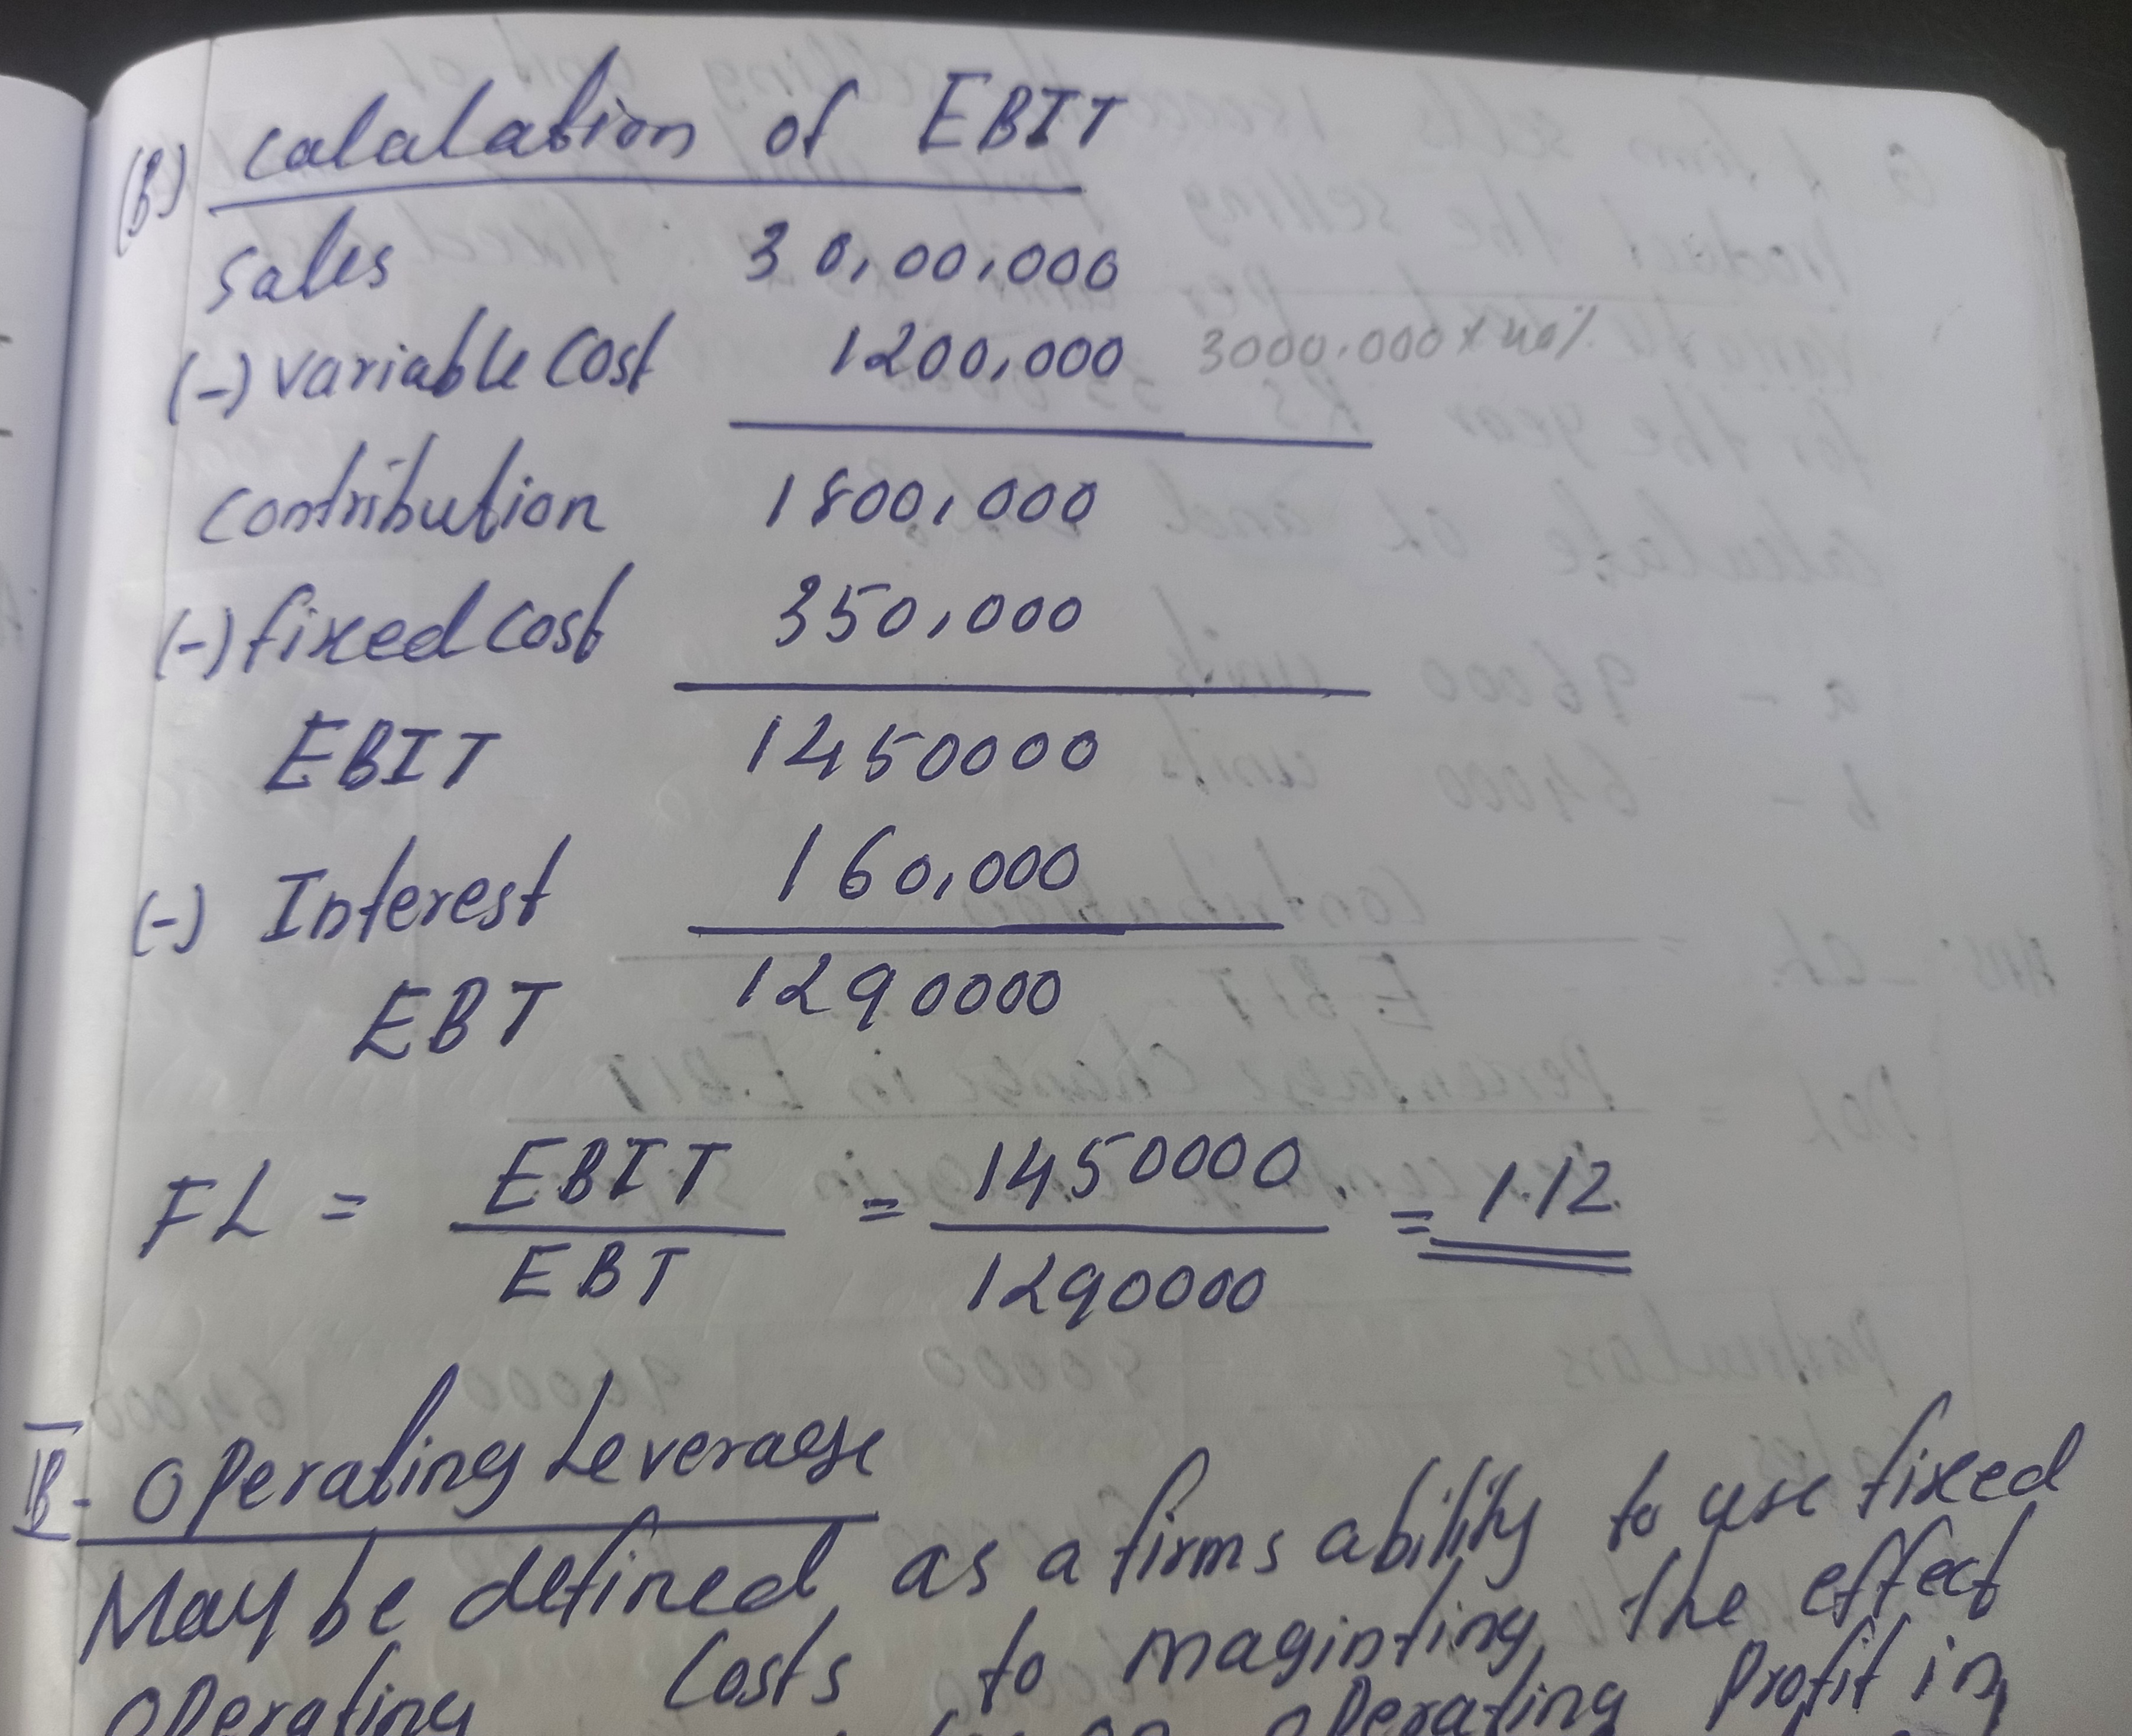 (B) calculation of EBIT
Sales 30,00,000
(-) variable cost 1200,000 3000,000 x 40%
contribution 1800,000
(-) fixed cost 350,000
EBIT 1450000
(-) Interest 160,000
EBT 1290000
FL = EBIT / EBT = 1450000 / 1290000 = 1.12
II B - Operating Leverage
May be defined as a firms ability to use fixed
Operating costs to the effect
operating Profit in